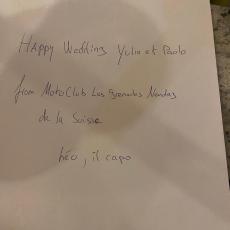 Happy Wedding Yulia et Paolo
from MotoClub Las Nendas
de la Suisse
Léo, il capo